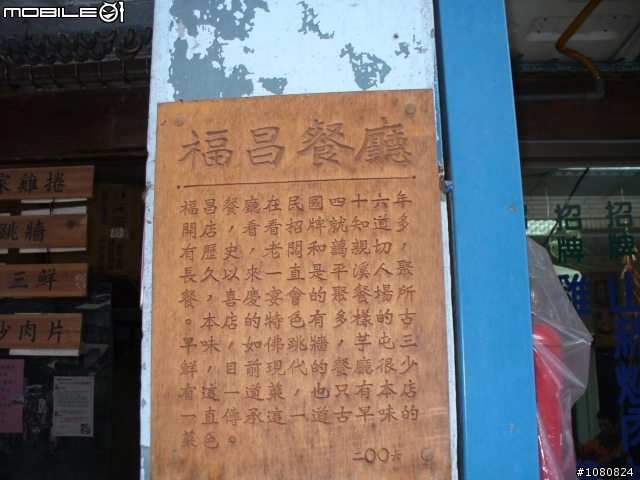 MOBILE01
福昌餐廳
福昌餐廳在民國四十六年
開店，看看招牌就知道多
有歷史，老闆和藹親切，
長久以來一直是平溪人聚
餐，喜慶宴會的聚餐場所
。本店的特色有多樣的古
早味，如佛跳牆，芋屯三
鮮，目前現代的餐廳很少
有這一道菜，也只有本店
一直傳承這一道古早味的
菜色。
二〇〇六
家雞捲
跳牆
三鮮
炒肉片
招牌
招牌
#1080824